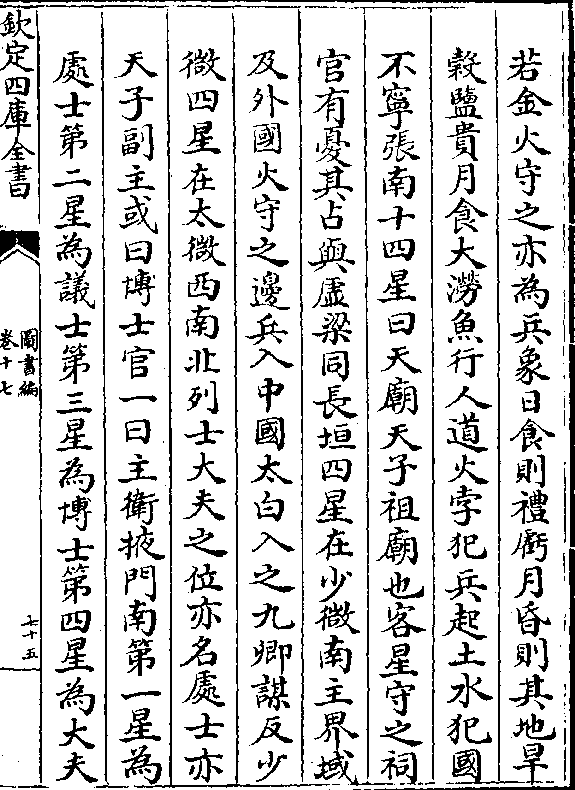 若金火守之亦為兵象日食則禮虧月昏則其地旱
穀鹽貴月食大澇魚行人道火孛犯兵起土水犯國
不寧張南十四星曰天廟天子祖廟也客星守之祠
官有憂其占與虛梁同長垣四星在少微南主界域
及外國火守之邊兵入中國太白入之九卿謀反少
微四星在太微西南北列士大夫之位亦名處士亦
天子副主或曰博士官一曰主衛掖門南第一星為
處士第二星為議士第三星為博士第四星為大夫
欽定四庫全書
圖書編
卷十七
七十五